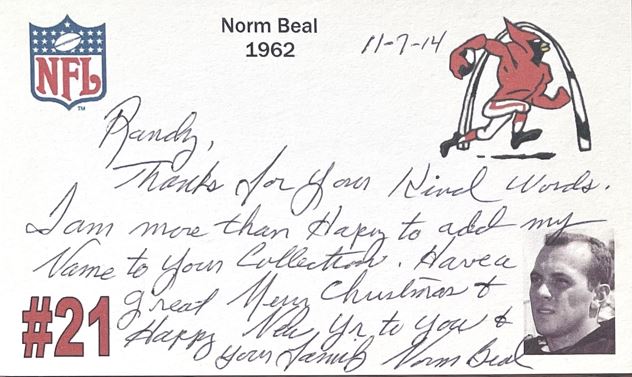 NFL
TM
Norm Beal
1962
11-7-14
Randy,
Thanks for your Kind words.
I am more than Happy to add my
Name to your Collection. Have a
great Merry Christmas &
Happy New Yr to you &
your Family Norm Beal
#21